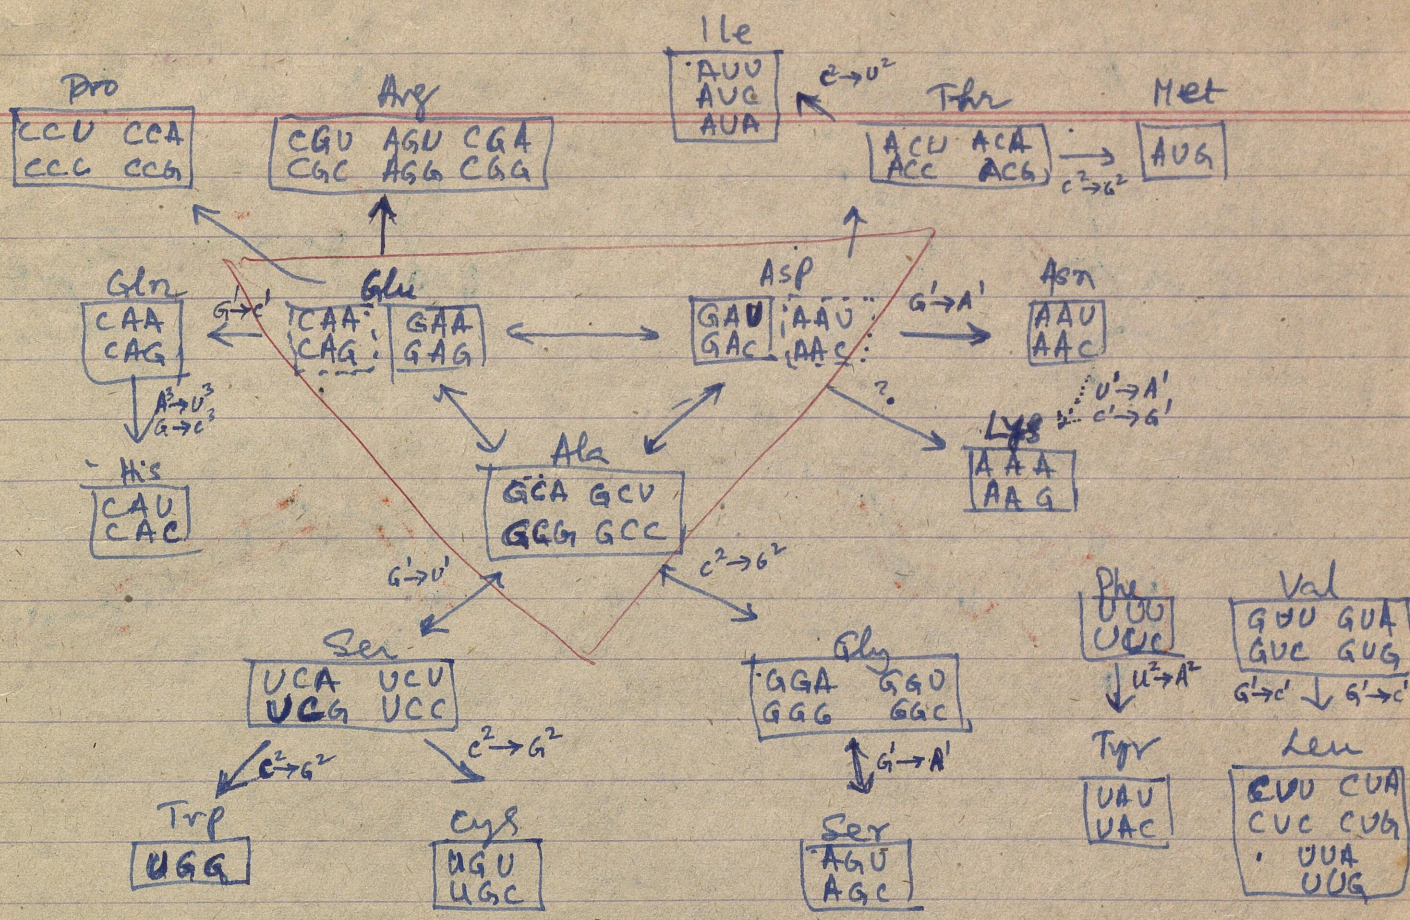 Ile
AUU
AUC
AUA
C²→U²
Pro
CCU CCA
CCC CCG
Arg
CGU AGU CGA
CGC AGG CGG
Thr
ACU ACA
ACC ACG
C²→G²
Met
AUG
Gln
CAA
CAG
G'→C'
Glu
CAA GAA
CAG GAG
Asp
GAU AAU
GAC AAC
G'→A'
Asn
AAU
AAC
A³→U³
G→C³
His
CAU
CAC
Ala
GCA GCU
GCG GCC
?
U'→A'
C'→G'
Lys
AAA
AAG
G'→U'
C²→G²
Ser
UCA UCU
UCG UCC
Gly
GGA GGU
GGG GGC
Phe
UUU
UUC
U²→A²
Val
GUU GUA
GUC GUG
G'→C' G'→C'
C²→G²
C²→G²
G'→A'
Trp
UGG
Cys
UGU
UGC
Ser
AGU
AGC
Tyr
UAU
UAC
Leu
CUU CUA
CUC CUG
UUA
UUG